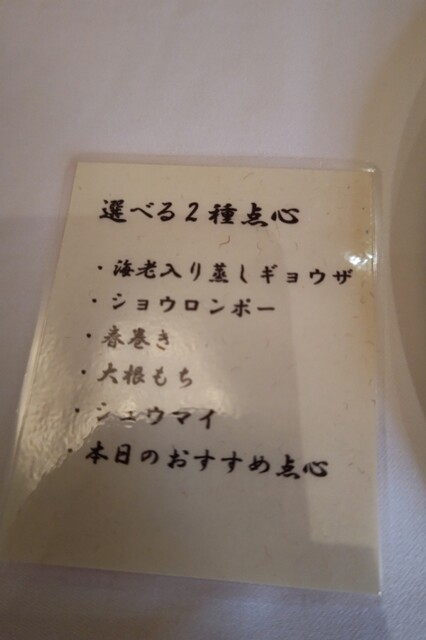 選べる2種点心
・海老入り蒸しギョウザ
・ショウロンポー
・春巻き
・大根もち
・シュウマイ
・本日のおすすめ点心